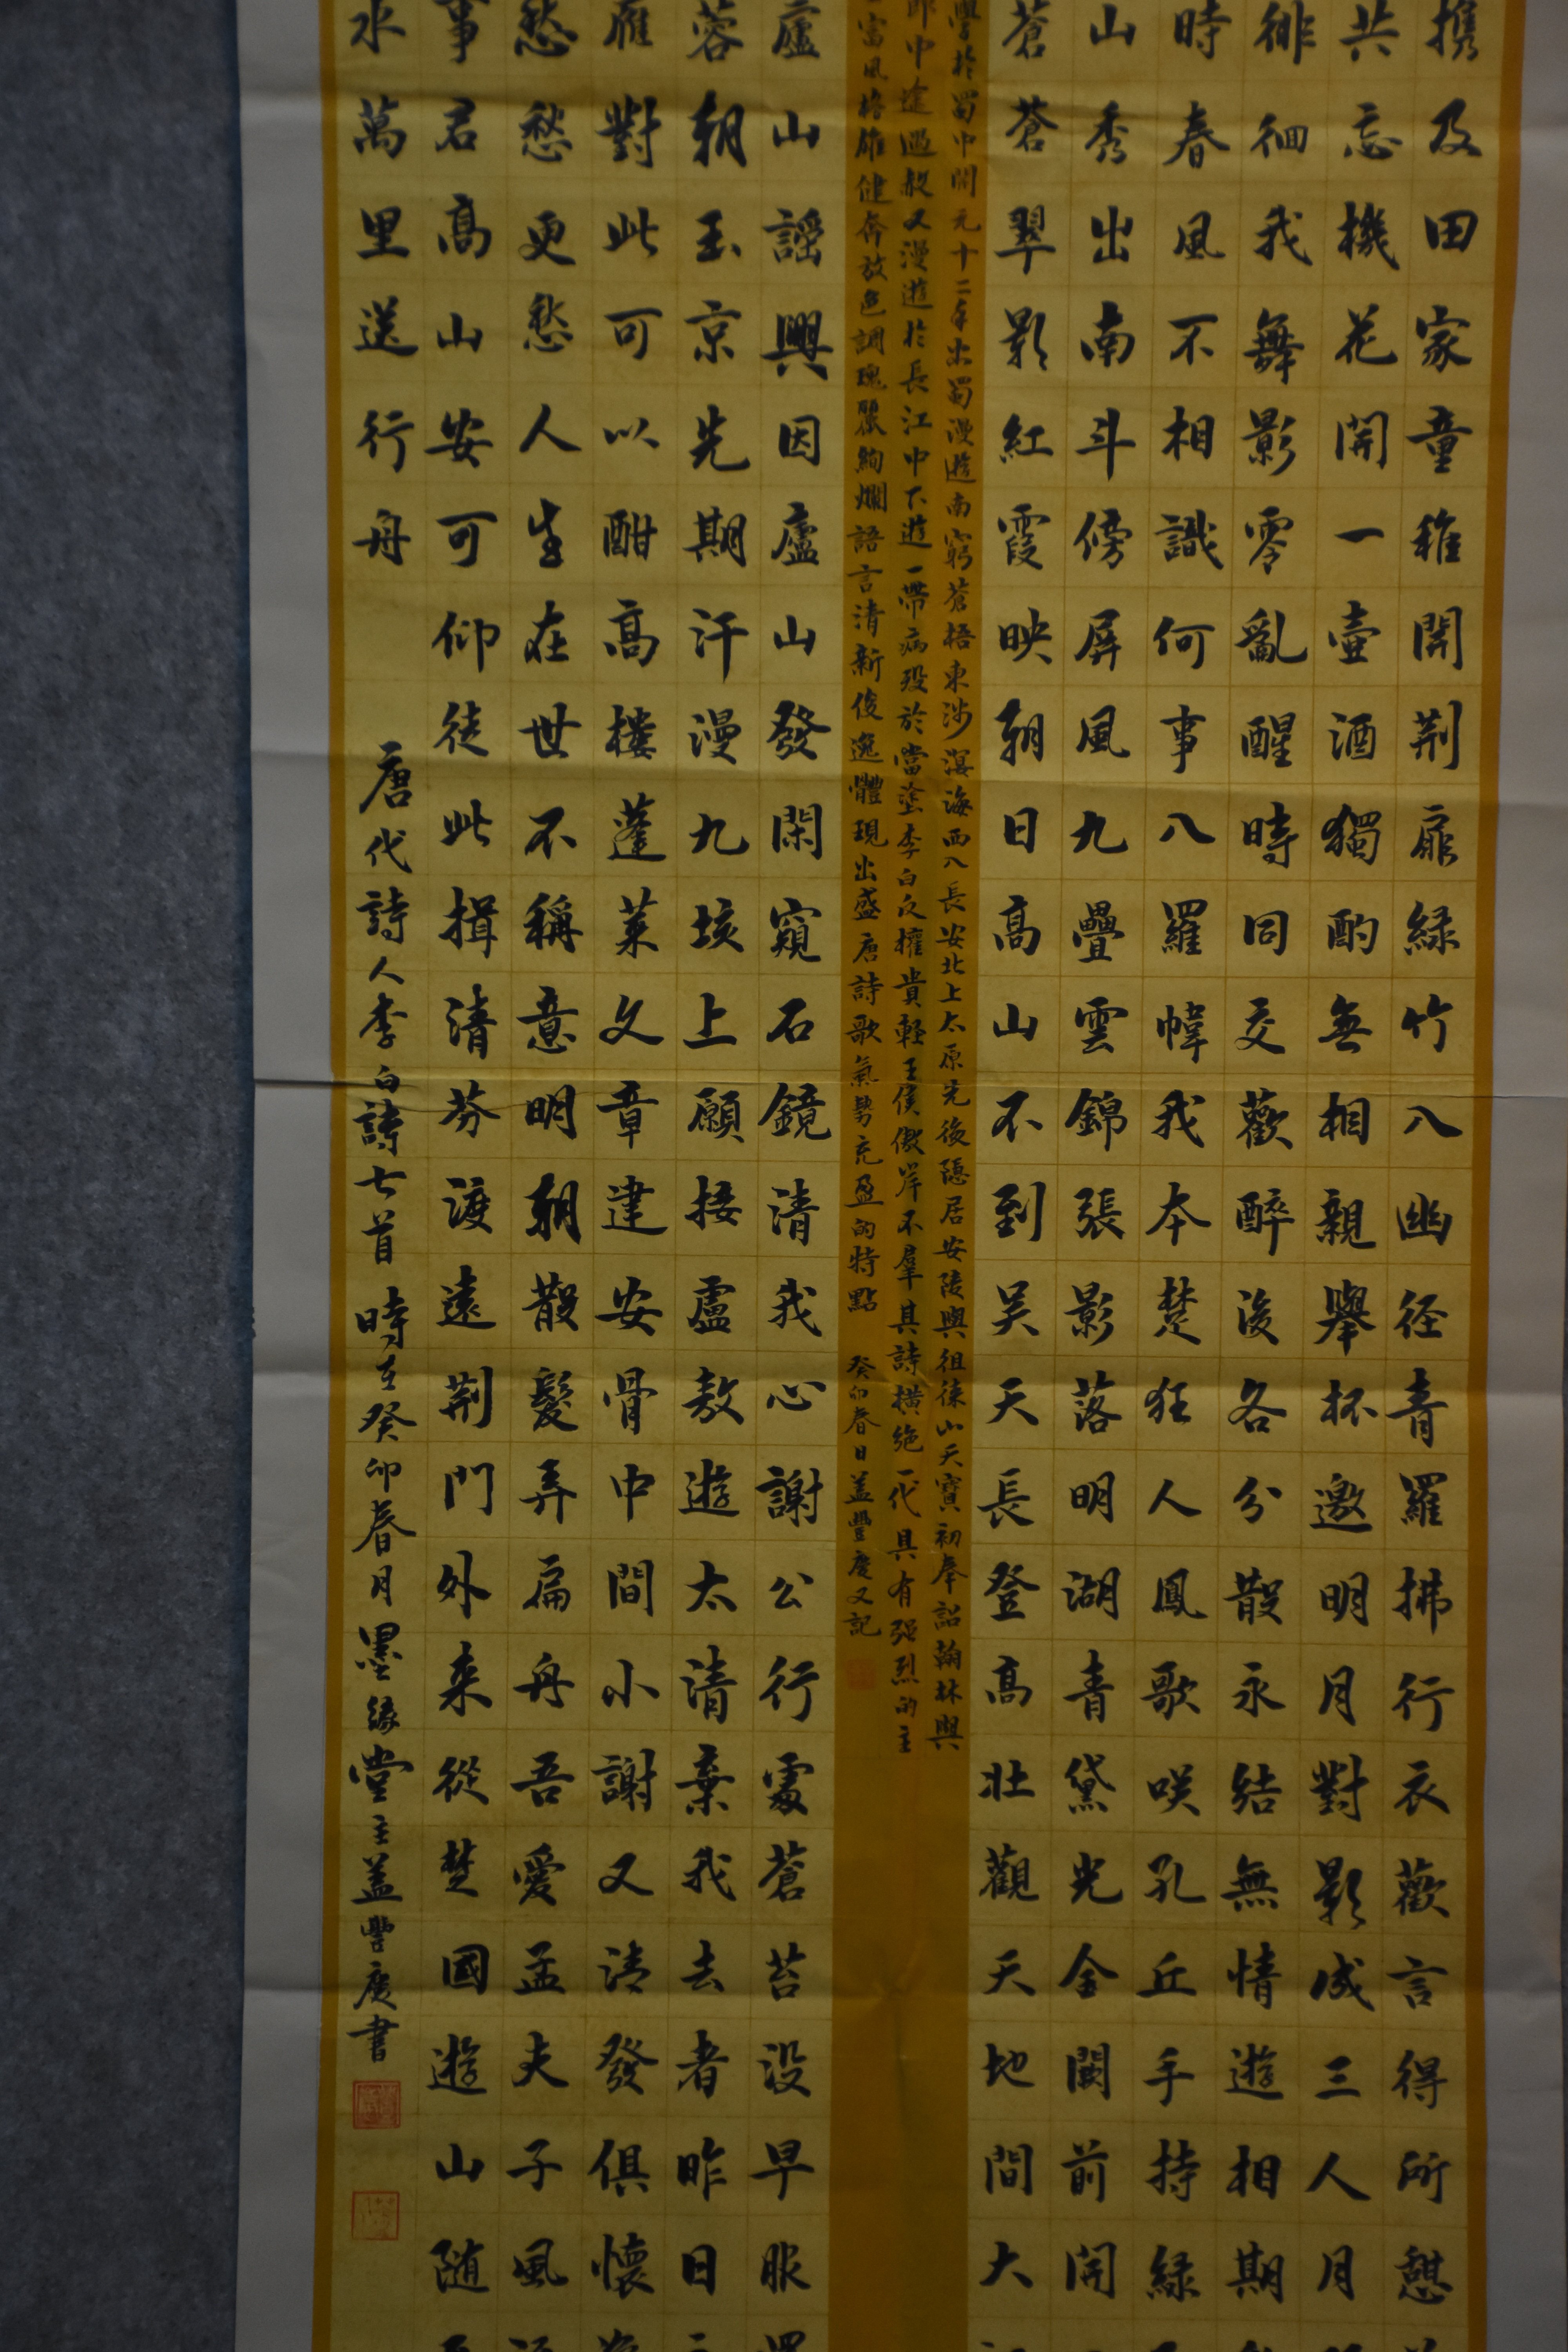 携及田家童稚開荆扉緑竹入幽径青羅拂行衣歡言得所憩
共忘機花開一壺酒獨酌無相親舉杯邀明月對影成三人月
徘徊我舞影零亂醒時同交歡醉後各分散永結無情遊相期
時春風不相識何事入羅幃我本楚狂人鳳歌咲孔丘手持緑
山秀出南斗傍屏風九疊雲錦張影落明湖青黛光金闕前開
蒼蒼翠影紅霞映朝日高山不到吴天長登高壯觀天地間大
學於蜀中開元十二年出蜀漫遊南窮蒼梧東涉溟海西入長安北上太原先後隱居安陵與徂徠山天寶初奉詔翰林與
郎中途遇赦又漫遊於長江中下遊一帶病殁於當塗李白反權貴輕王侯傲岸不羣其詩横绝一代具有强烈的主
富風格雄健奔放色調瑰麗絢爛語言清新俊逸體現出盛唐詩歌氣勢充盈的特點 癸卯春日盖豐慶又記
廬山謡興因廬山發閑窺石鏡清我心謝公行處蒼苔没早服
蓉朝玉京先期汗漫九垓上願接盧敖遊太清棄我去者昨日
雁對此可以酣高樓蓬萊文章建安骨中間小謝又清發俱懷
愁愁更愁人生在世不稱意明朝散髮弄扁舟吾愛孟夫子風
事君高山安可仰徒此揖清芬渡遠荆門外来從楚國遊山随
水萬里送行舟 唐代詩人李白詩七首 時在癸卯春月墨緣堂主盖豐慶書